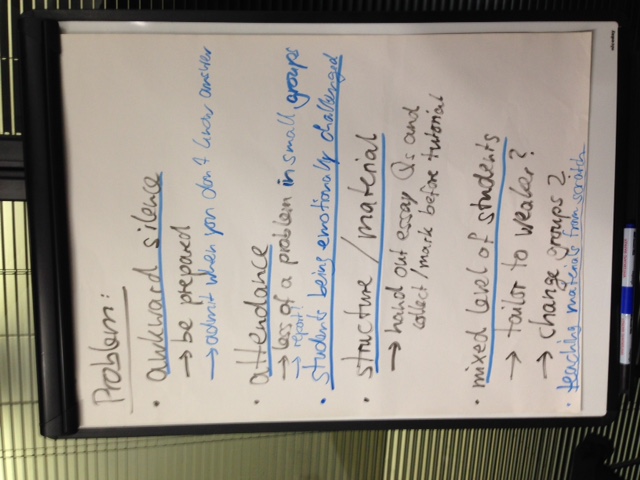 Problem:
• awkward silence
→ be prepared
→ admit when you don't know answer
• attendance
→ less of a problem in small groups
→ report!
• students being emotionally challenged
• structure / material
→ hand out essay Qs and
collect / mark before tutorial
• mixed level of students
→ tailor to weaker?
→ change groups?
• teaching materials from scratch